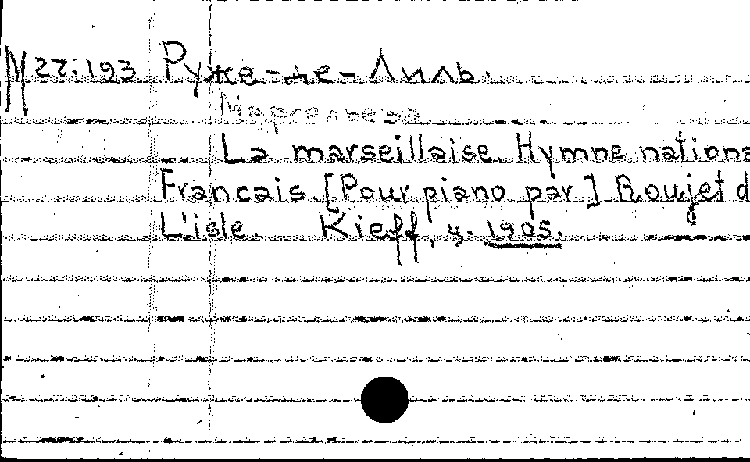 M 22:193 Руже-де-Лиль.
Марсельеза
La marseillaise. Hymne nationa
Francais [Pour piano par] Roujet d
L'isle. Kieff, ц. 1905.